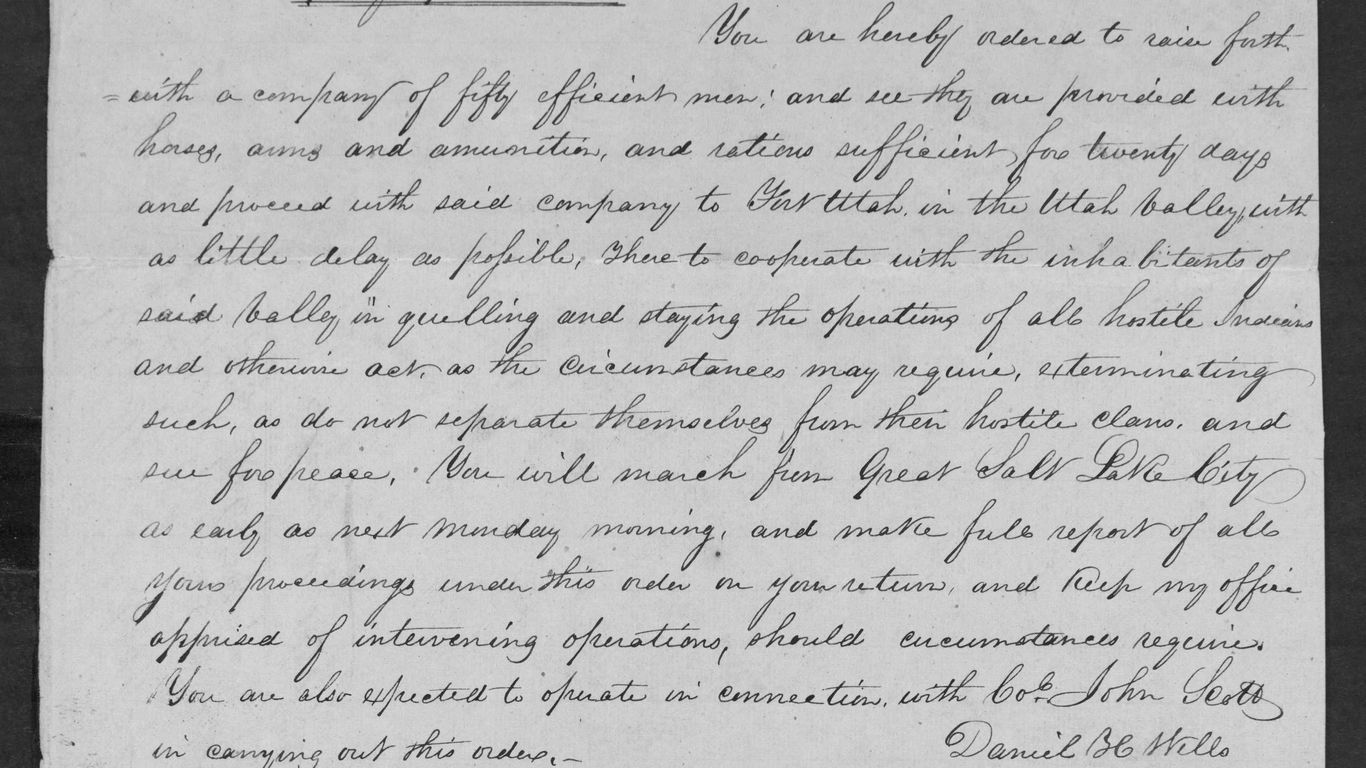 You are hereby ordered to raise forth
=with a company of fifty efficient men; and see they are provided with
horses, arms and amunition, and rations sufficient for twenty days
and proceed with said company to Fort Utah. in the Utah Valley, with
as little delay as possible, There to cooperate with the inhabitants of
said Valley in quelling and staying the operations of all hostile Indians
and otherwise act, as the circumstances may require, exterminating
such, as do not separate themselves from their hostile clans. and
sue for peace. You will march from Great Salt Lake City
as early as next Monday morning, and make full report of all
your proceedings under this order on your return, and Keep my office
apprised of intervening operations, should circumstances require.
You are also expected to operate in connection. with Col. John Scott
in carrying out this order.—
Daniel H Wells